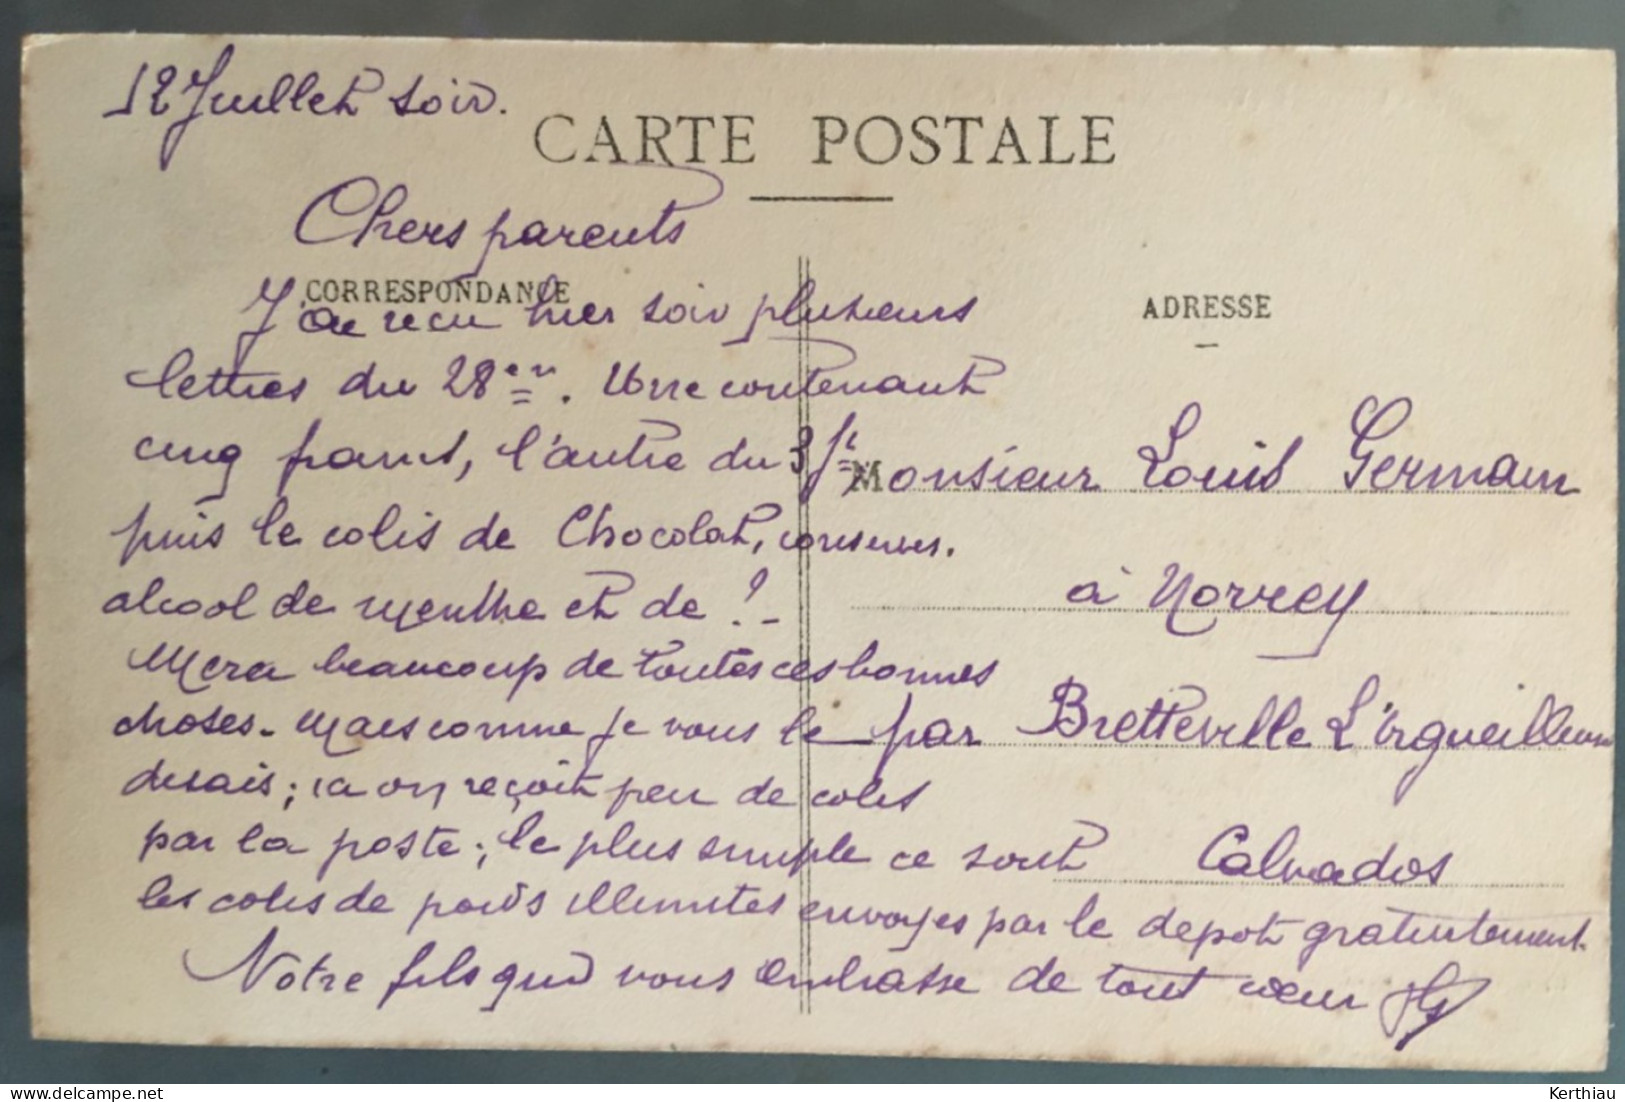 12 Juillet soir.
CARTE POSTALE
Chers parents
CORRESPONDANCE
J'ai recu hier soir plusieurs
lettres du 28 . Une contenant
cinq francs, l'autre du 3
puis le colis de Chocolat, conserves.
alcool de menthe et de ? -
Merci beaucoup de toutes ces bonnes
choses. Mais comme je vous le
disais; ca on reçoit peu de colis
par la poste; le plus simple ce sont
les colis de poids illimites envoyes par le depot gratuitement.
Notre fils qui vous embrasse de tout cœur
ADRESSE
Monsieur Louis Germain
à Norrey
par Bretteville L'orgueilleuse
Calvados
Kerthiau